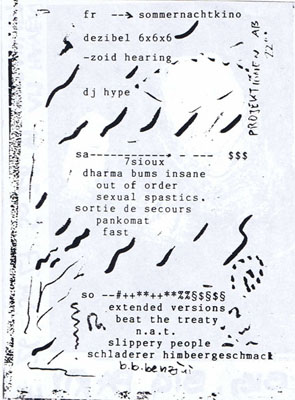 fr ---> sommernachtkino
dezibel 6x6x6
-zoid hearing
dj hype
PROJEKTIONEN AB
22°°
sa------------- - --- $$$
7sioux
dharma bums insane
out of order
sexual spastics.
sortie de secours
pankomat
fast
so --#++**++**%%§§$§$
extended versions
beat the treaty
n.a.t.
slippery people
schladerer himbeergeschmack
b.b.benzii